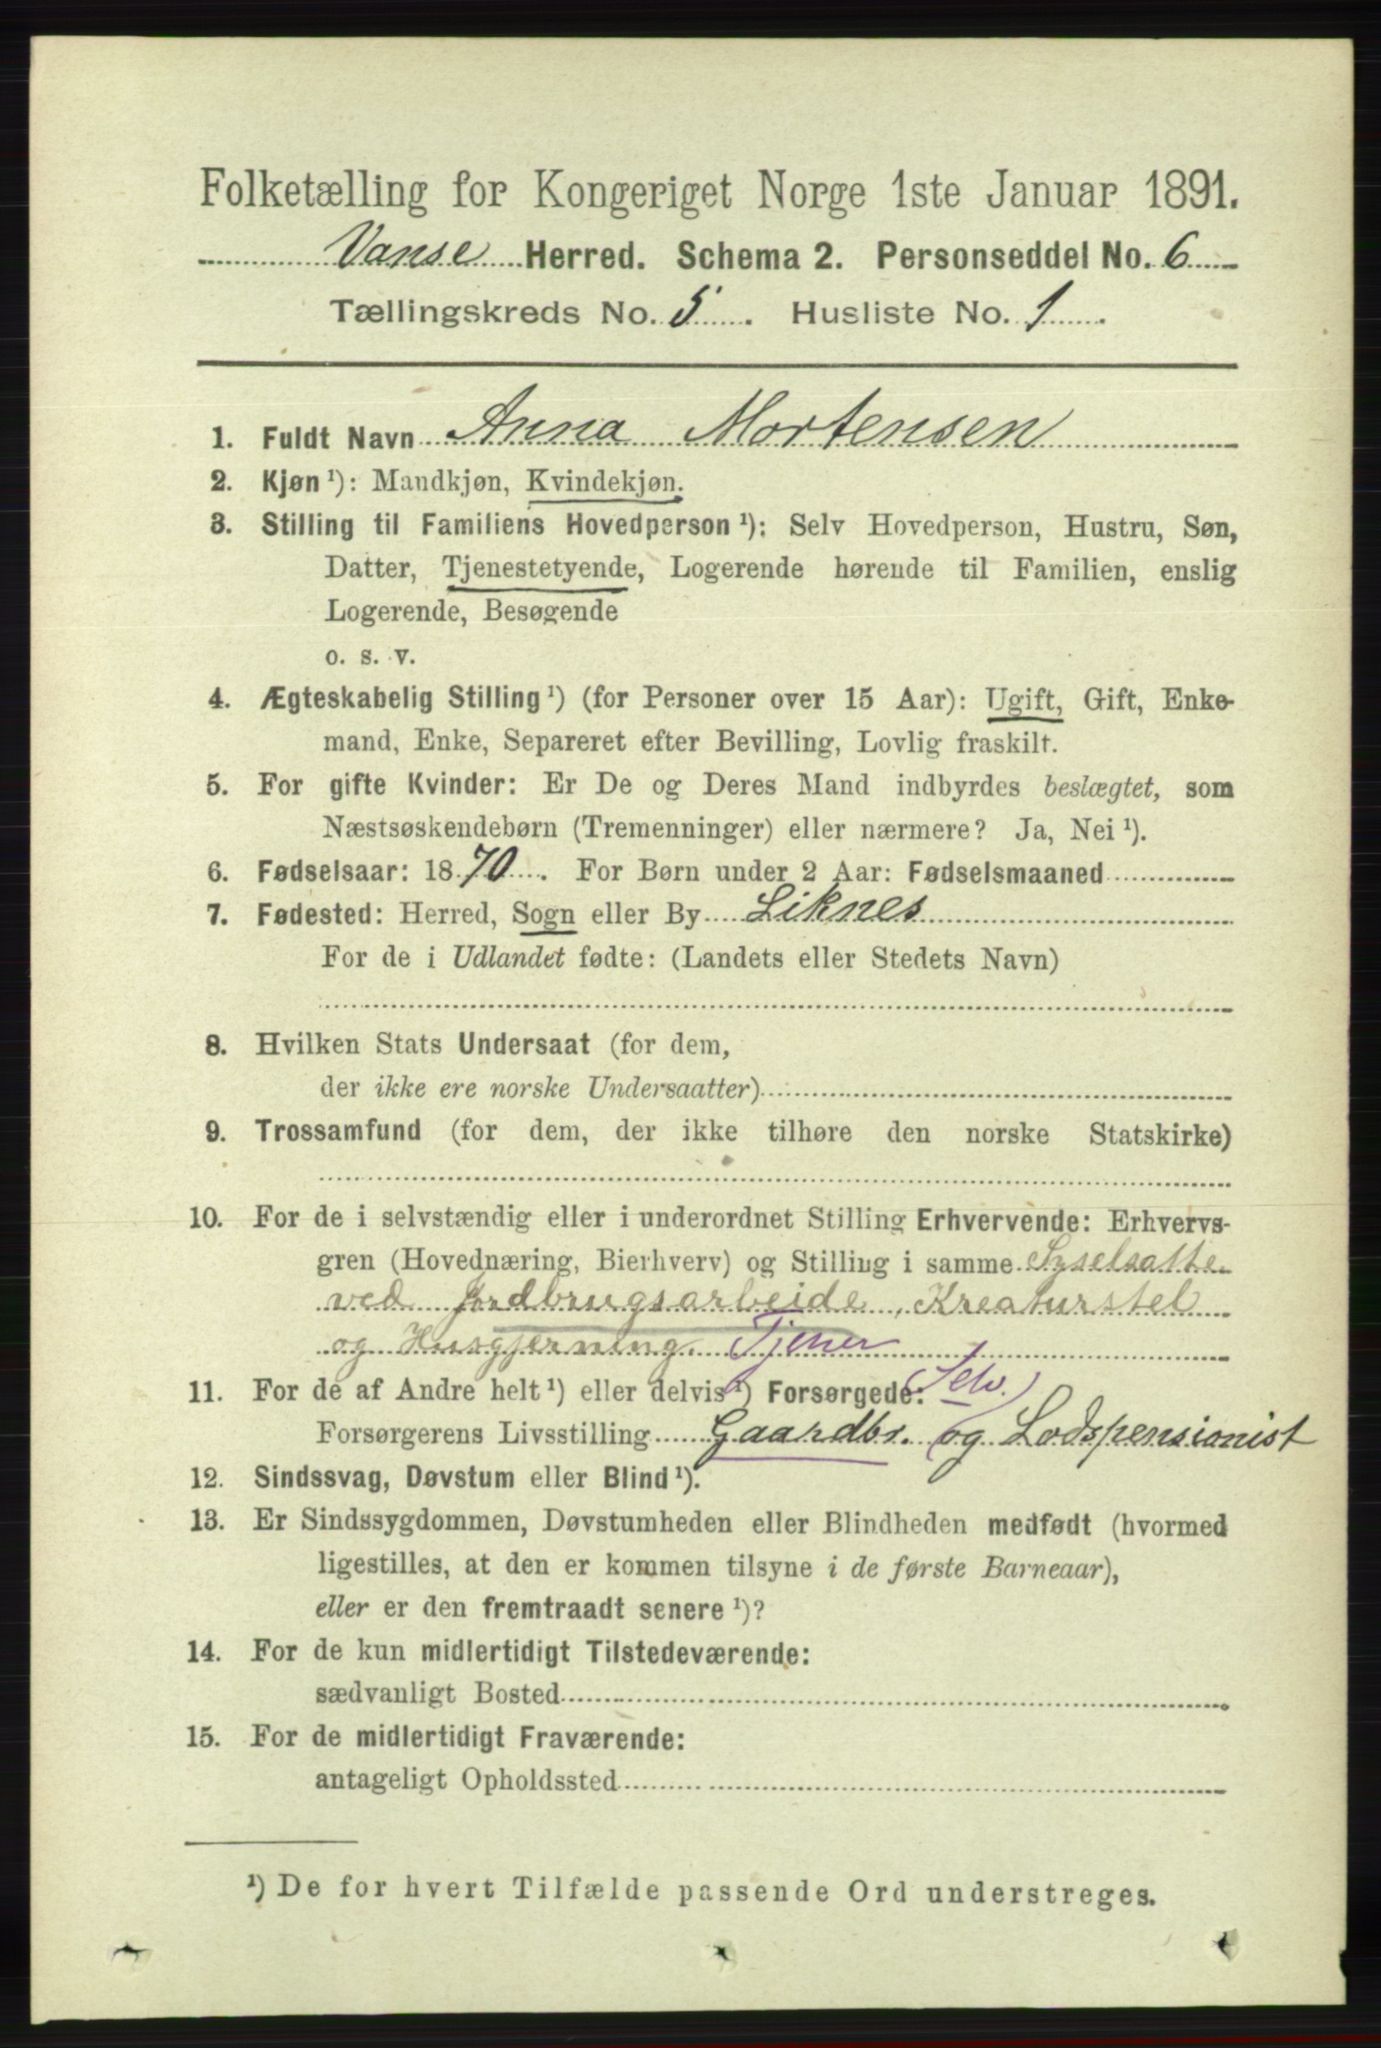 Folketælling for Kongeriget Norge 1ste Januar 1891.
Vanse Herred. Schema 2. Personseddel No. 6
Tællingskreds No. 5. Husliste No. 1.
1. Fuldt Navn Anna Mortensen
2. Kjøn¹): Mandkjøn, Kvindekjøn.
3. Stilling til Familiens Hovedperson¹): Selv Hovedperson, Hustru, Søn,
Datter, Tjenestetyende, Logerende hørende til Familien, enslig
Logerende, Besøgende
o. s. v.
4. Ægteskabelig Stilling¹) (for Personer over 15 Aar): Ugift, Gift, Enke-
mand, Enke, Separeret efter Bevilling, Lovlig fraskilt.
5. For gifte Kvinder: Er De og Deres Mand indbyrdes beslægtet, som
Næstsøskendebørn (Tremenninger) eller nærmere? Ja, Nei¹).
6. Fødselsaar: 1870. For Børn under 2 Aar: Fødselsmaaned
7. Fødested: Herred, Sogn eller By Liknes
For de i Udlandet fødte: (Landets eller Stedets Navn)
8. Hvilken Stats Undersaat (for dem,
der ikke ere norske Undersaatter)
9. Trossamfund (for dem, der ikke tilhøre den norske Statskirke)
10. For de i selvstændig eller i underordnet Stilling Erhvervende: Erhvervs-
gren (Hovednæring, Bierhverv) og Stilling i samme Syselsatte
ved Jordbrugsarbeide, Kreaturstel
og Husgjerning. Tjener
11. For de af Andre helt¹) eller delvis¹) Forsørgede: (Selv.)
Forsørgerens Livsstilling Gaardbr. og Lodspensionist
12. Sindssvag, Døvstum eller Blind¹).
13. Er Sindssygdommen, Døvstumheden eller Blindheden medfødt (hvormed
ligestilles, at den er kommen tilsyne i de første Barneaar),
eller er den fremtraadt senere¹)?
14. For de kun midlertidigt Tilstedeværende:
sædvanligt Bosted
15. For de midlertidigt Fraværende:
antageligt Opholdssted
¹) De for hvert Tilfælde passende Ord understreges.